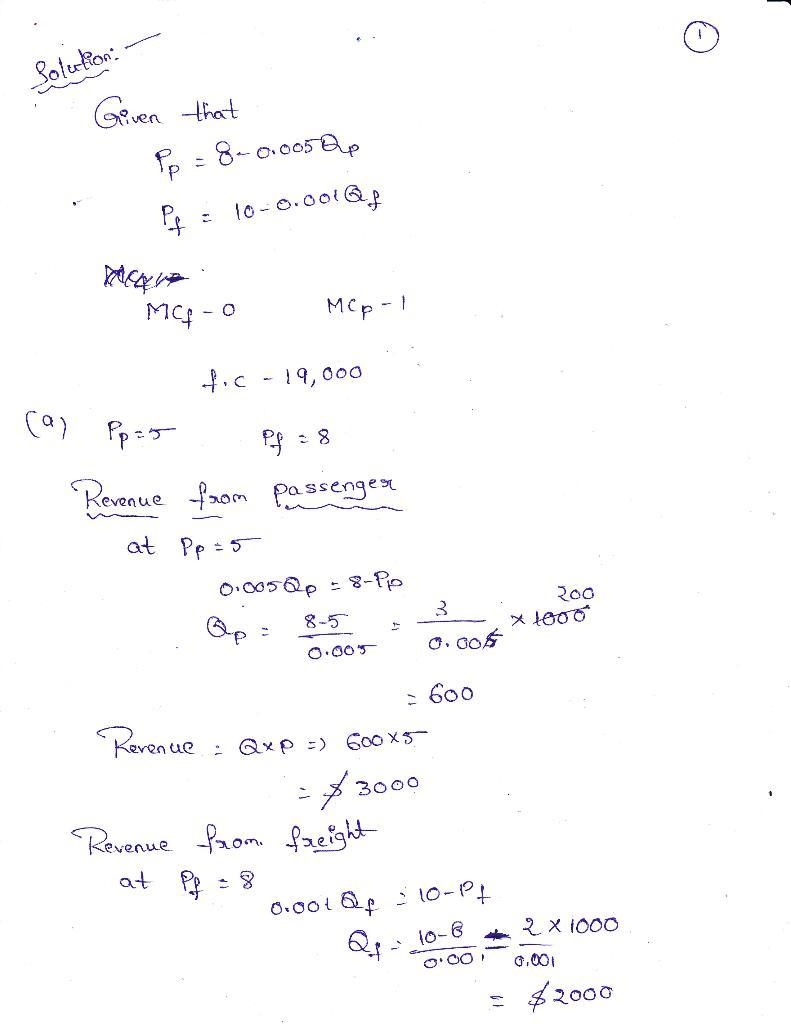 1
Solution:-
Given that
Pp = 8-0.005Qp
Pf = 10-0.001Qf
MCf - 0 MCp - 1
f.c - 19,000
(a) Pp=5 Pf = 8
Revenue from passenger
at Pp=5
0.005Qp = 8-Pp
Qp = 8-5/0.005 = 3/0.005 x 1000 200
= 600
Revenue = QxP => 600x5
= $3000
Revenue from freight
at Pf = 8
0.001Qf = 10-Pf
Qf = 10-8/0.001 = 2 x 1000/0.001
= $2000